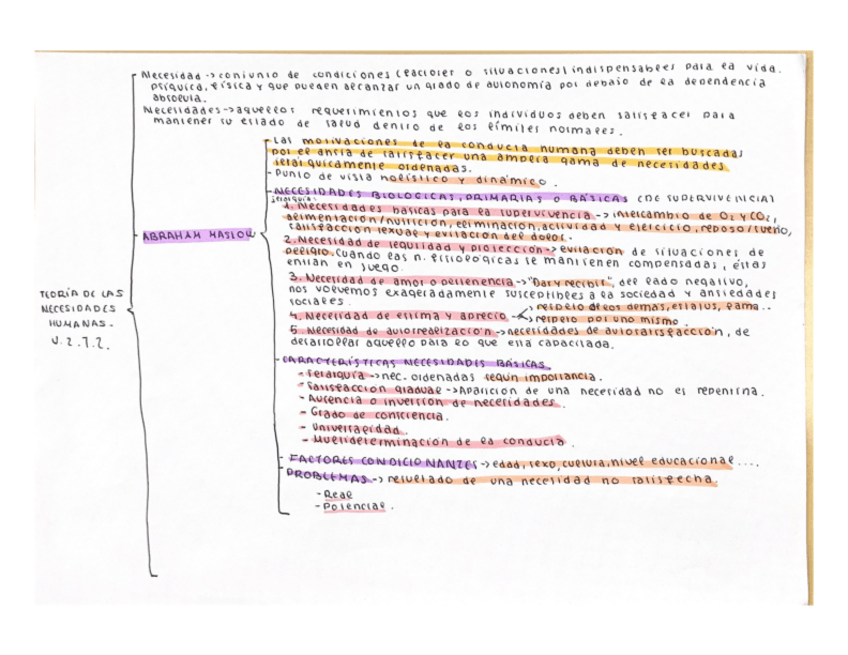 Necesidad -> conjunto de condiciones (factores o situaciones) indispensables para la vida.
psíquica, física y que pueden alcanzar un grado de autonomía por debajo de la dependencia
absoluta.
Necesidades -> aquellos requerimientos que los individuos deben satisfacer para
mantener su estado de salud dentro de los límites normales.
TEORÍA DE LAS
NECESIDADES
HUMANAS.
U.2.T.2.
ABRAHAM MASLOW
- Las motivaciones de la conducta humana deben ser buscadas
por el ansia de satisfacer una amplia gama de necesidades
jerárquicamente ordenadas.
- Punto de vista holístico y dinámico.
- NECESIDADES BIOLÓGICAS, PRIMARIAS O BÁSICAS (DE SUPERVIVENCIA)
jerarquía:
1. Necesidades básicas para la supervivencia -> intercambio de O2 y CO2,
alimentación/nutrición, eliminación, actividad y ejercicio, reposo/sueño,
satisfacción sexual y evitación del dolor.
2. Necesidad de seguridad y protección -> evitación de situaciones de
peligro. Cuando las n. fisiológicas se mantienen compensadas, éstas
entran en juego.
3. Necesidad de amor o pertenencia -> "Dar y recibir", del lado negativo,
nos volvemos exageradamente susceptibles a la sociedad y ansiedades
sociales.
4. Necesidad de estima y aprecio -> respeto de los demás, estatus, fama..
-> respeto por uno mismo.
5. Necesidad de autorrealización -> necesidades de autosatisfacción, de
desarrollar aquello para lo que está capacitada.
- CARACTERÍSTICAS NECESIDADES BÁSICAS.
- Jerarquía -> nec. ordenadas según importancia.
- Satisfacción gradual -> Aparición de una necesidad no es repentina.
- Ausencia o inversión de necesidades.
- Grado de consciencia.
- Universalidad.
- Multideterminación de la conducta.
- FACTORES CONDICIONANTES -> edad, sexo, cultura, nivel educacional....
- PROBLEMAS -> resultado de una necesidad no satisfecha.
- Real
- Potencial.